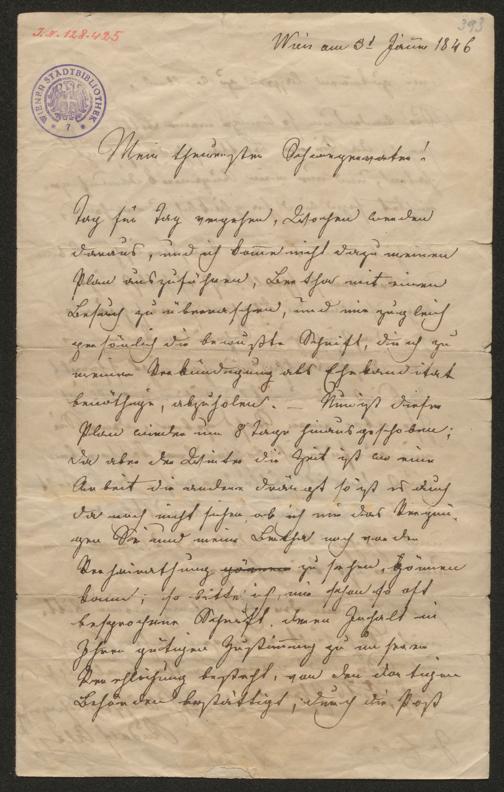 I.N. 128.425
393
Wien am 3t Jänn 1846
WIENER STADTBIBLIOTHEK
7
Mein theuerster Schwiegervater!
Tag für Tag vergehen, Wochen werden
daraus, und ich komme nicht dazu meinen
Plan auszuführen, Bertha mit einem
Besuch zu überraschen, und mir zugleich
persönlich die bewußte Schrift, die ich zu
meiner Verkündigung als Ehekanditat
benöthige, abzuholen. — Nun ist dieser
Plan wieder um 8 Tage hinausgeschoben;
da aber der Winter die Zeit ist wo eine
Arbeit die andere drängt so ist es auch
da noch nicht sicher ob ich mir das Vergnü-
gen Sie und meine Bertha noch vor der
Verheirathung gönnen zu sehen, gönnen
kann; so bitte ich, mir schon so oft
besprochene Schrift, deren Inhalt in
Ihrer gütigen Zustimmung zu unserer
Verehlichung besteht, von den dortigen
Behörden bestättigt, durch die Post